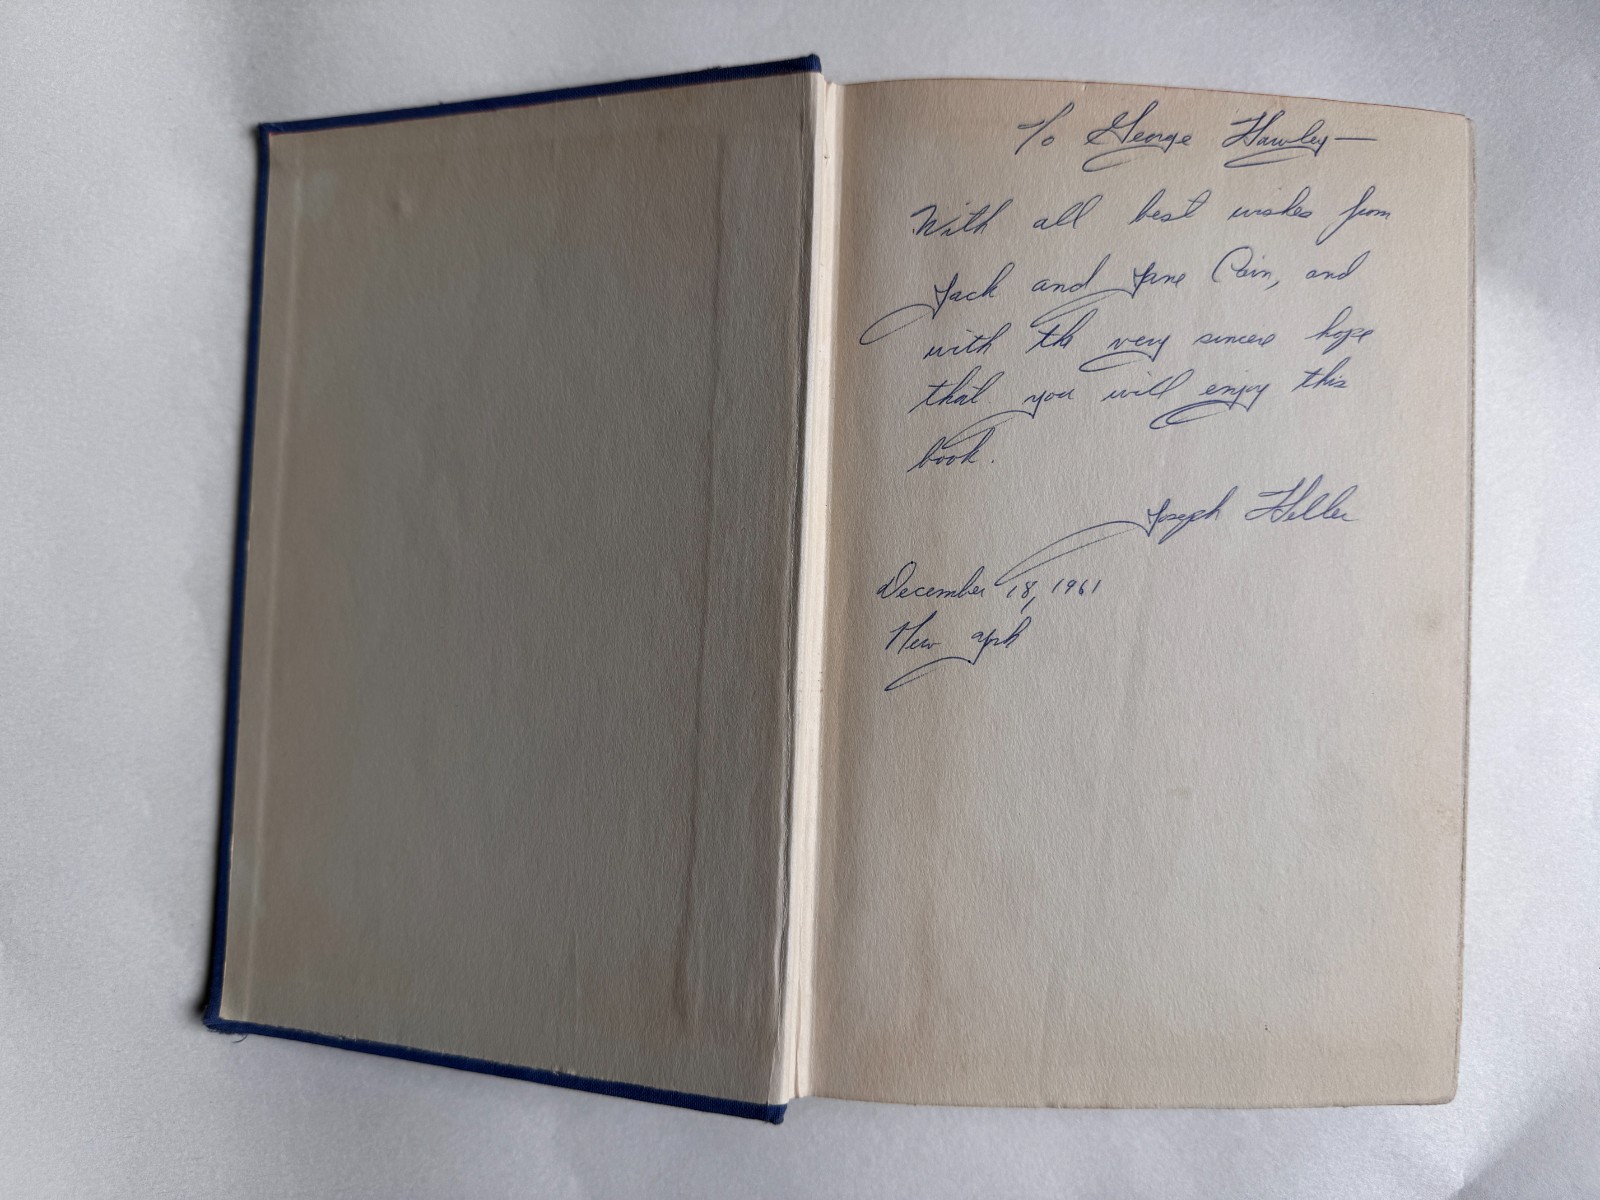 To George Hawley—
With all best wishes from
Jack and Jane Cain, and
with the very sincere hope
that you will enjoy this
book.
Joseph Heller
December 18, 1961
New York